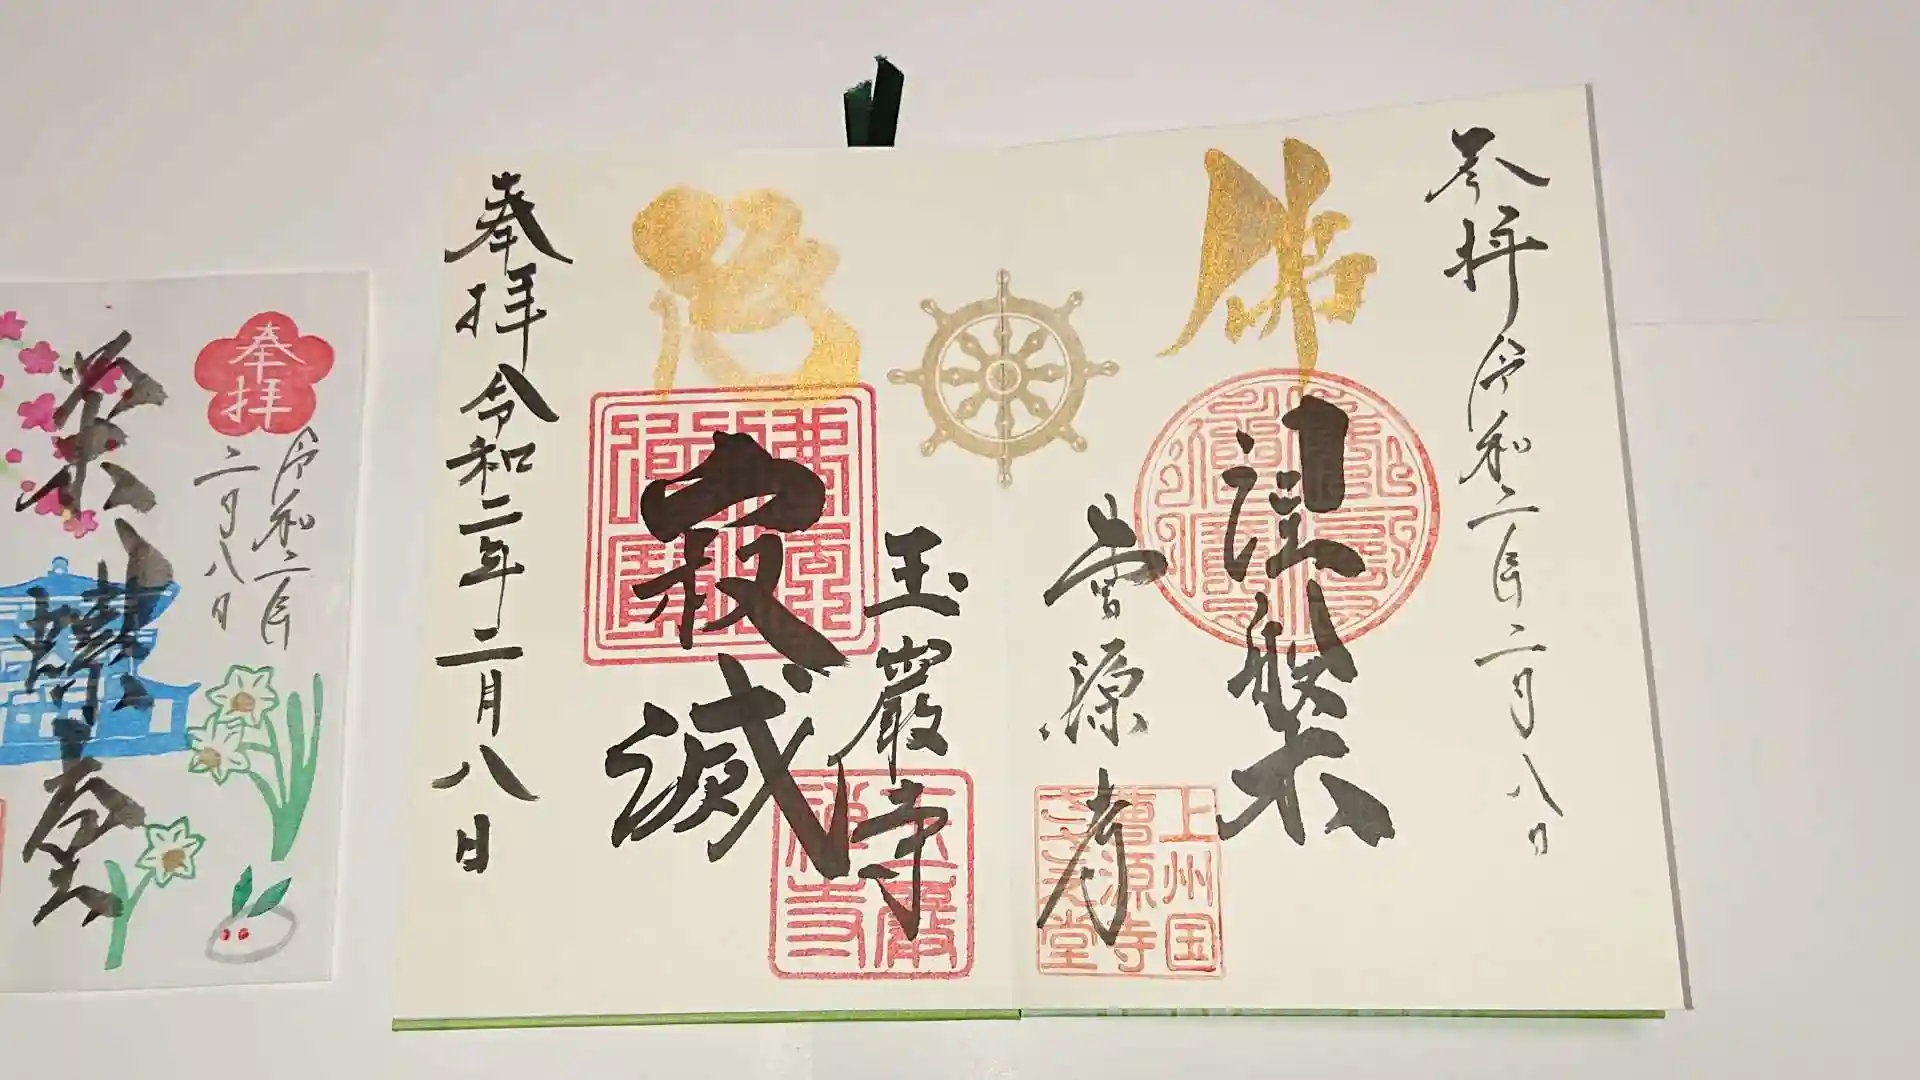 奉拝 令和二年二月八日
佛
涅槃
曹源寺
上州国
曹源寺
さゞえ堂
玉巖寺
寂滅
奉拝 令和二年二月八日
奉拝
令和二年
二月八日
栄螺堂